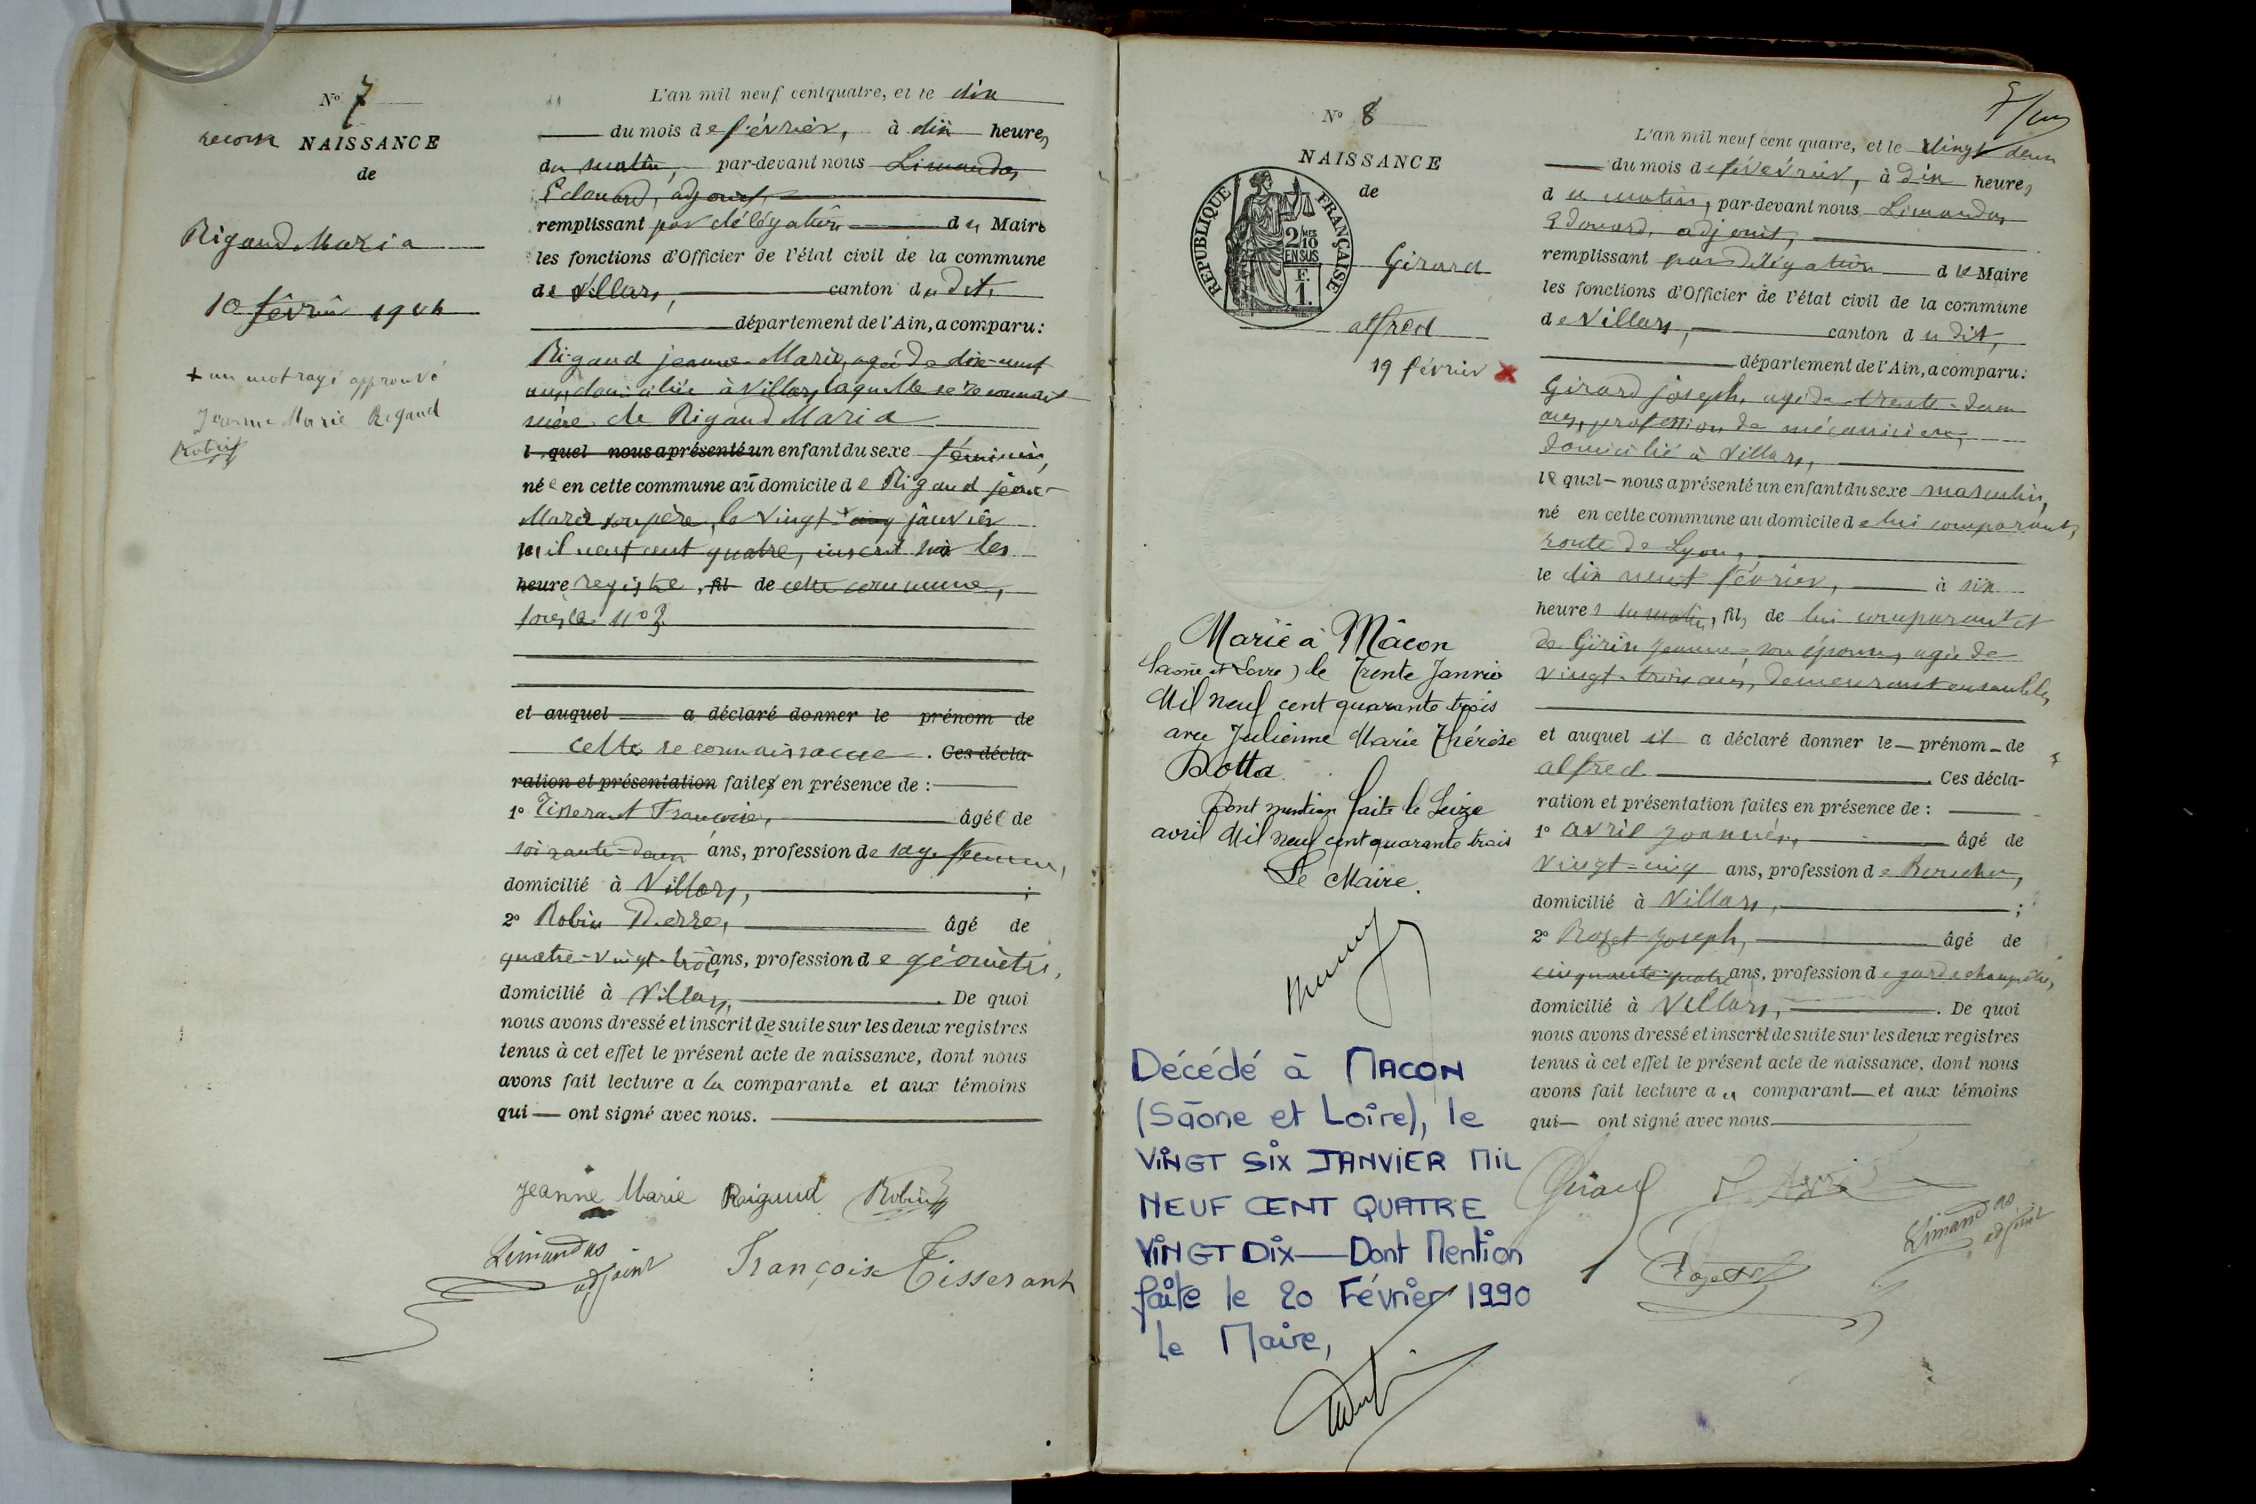 N° 7
reconn NAISSANCE
de
Rigaud Maria
10 février 1904
+ un mot rayé approuvé
Jeanne Marie Rigaud
Robin
L'an mil neuf cent quatre, et le dix
du mois de février, à dix heures
du matin, par-devant nous Limandas
Edouard, adjoint,
remplissant par délégation du Maire
les fonctions d'Officier de l'état civil de la commune
de Villars, canton du dit,
département de l'Ain, a comparu :
Rigaud jeanne-Marie, agée de dix-neuf
ans, domiciliée à Villars, laquelle se reconnait
mère de Rigaud Maria
l quel nous a présenté un enfant du sexe féminin,
née en cette commune au domicile de Rigaud jean-
Marie son père, le vingt janvier
mil neuf cent quatre, inscrit sur les
heure registre, fil de cette commune,
sous le n° 3
et auquel a déclaré donner le prénom de
cette reconnaissance. Ces décla-
ration et présentation faites en présence de :
1° Tisserant Francoise, âgée de
soixante-deux ans, profession de sage femme,
domicilié à Villars, ;
2° Robin Pierre, âgé de
quatre-vingt-trois ans, profession de géomètre,
domicilié à Villars, . De quoi
nous avons dressé et inscrit de suite sur les deux registres
tenus à cet effet le présent acte de naissance, dont nous
avons fait lecture a la comparante et aux témoins
qui — ont signé avec nous.
Jeanne Marie Raigaud Robin
Limandas
adjoint
Françoise Tisserant
N° 8
NAISSANCE
de
REPUBLIQUE FRANÇAISE
2 MES
10
EN SUS
F.
1.
Girard
alfred
19 février
Marié à Mâcon
(Saône et Loire) le Trente Janvier
Mil neuf cent quarante trois
avec Julienne Marie Thérèse
Dotta
Dont mention faite le Seize
avril Mil neuf cent quarante trois
Le Maire.
Décédé à MACON
(Saône et Loire), le
VINGT SIX JANVIER MIL
NEUF CENT QUATRE
VINGT DIX — Dont Mention
faite le 20 Février 1990
Le Maire,
L'an mil neuf cent quatre, et le vingt deux
du mois de février, à dix heures
du matin, par-devant nous Limandas
Edouard, adjoint,
remplissant par délégation de Maire
les fonctions d'Officier de l'état civil de la commune
de Villars, canton du dit,
département de l'Ain, a comparu :
Girard joseph, agé de trente-deux
ans, profession de mécanicien,
domicilié à Villars,
le quel — nous a présenté un enfant du sexe masculin,
né en cette commune au domicile de lui comparant,
route de Lyon,
le dix neuf février, à six
heures du matin, fils de lui comparant et
de Girin jeanne, son épouse, agée de
vingt-trois ans, demeurant ensemble,
et auquel il a déclaré donner le — prénom — de
alfred . Ces décla-
ration et présentation faites en présence de :
1° avril joannès, âgé de
vingt-cinq ans, profession de
domicilié à Villars, ;
2° Rozet joseph, âgé de
cinquante-quatre ans, profession de garde champêtre,
domicilié à Villars, . De quoi
nous avons dressé et inscrit de suite sur les deux registres
tenus à cet effet le présent acte de naissance, dont nous
avons fait lecture au comparant — et aux témoins
qui — ont signé avec nous
Girard
Limandas
adjoint